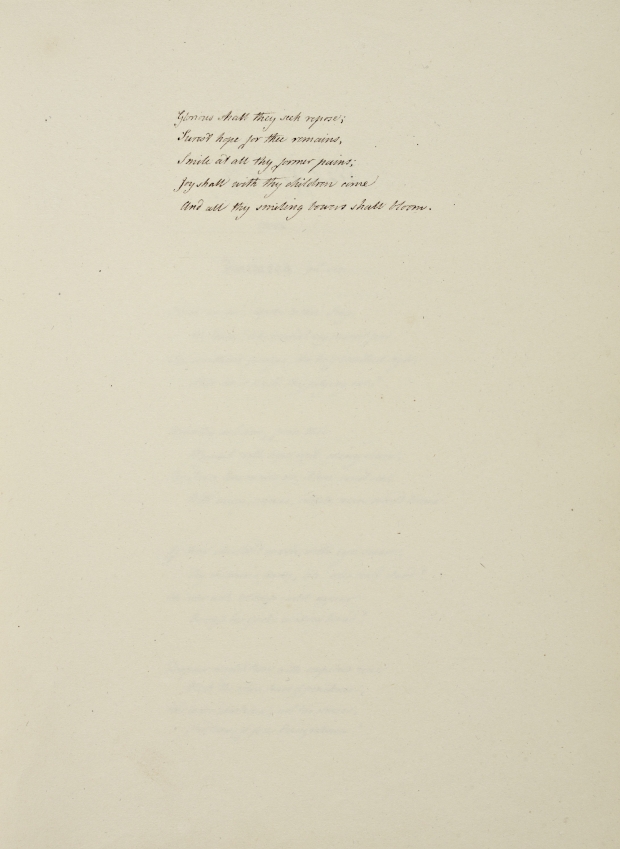 shall they seek repose;
Surest hope for thee remains,
Smile at all thy former pains;
Joy shall with thy children come
And all thy smiling bowers shall bloom.